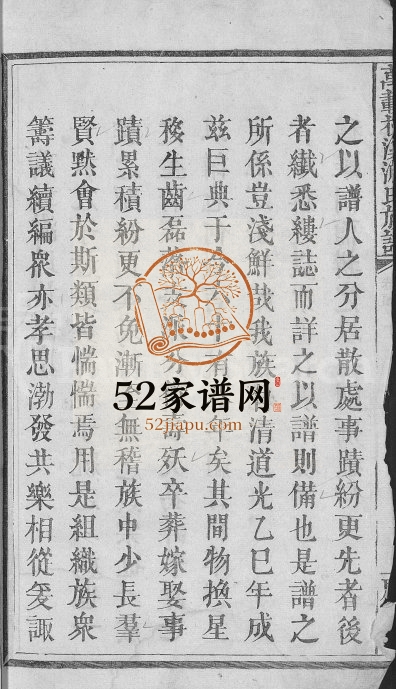 之以譜人之分居散處事蹟紛更先者後
者纖悉縷誌而詳之以譜則備也是譜之
所係豈淺鮮哉我族清道光乙巳年成
茲巨典于今六十有年矣其間物換星
移生齒磊殀卒葬嫁娶事
蹟累積紛更不免漸無稽族中少長羣
賢黙會於斯類皆惴惴焉用是組織族眾
籌議續編衆亦孝思渤發共樂相從爰諏
52家谱网
52jiapu.com